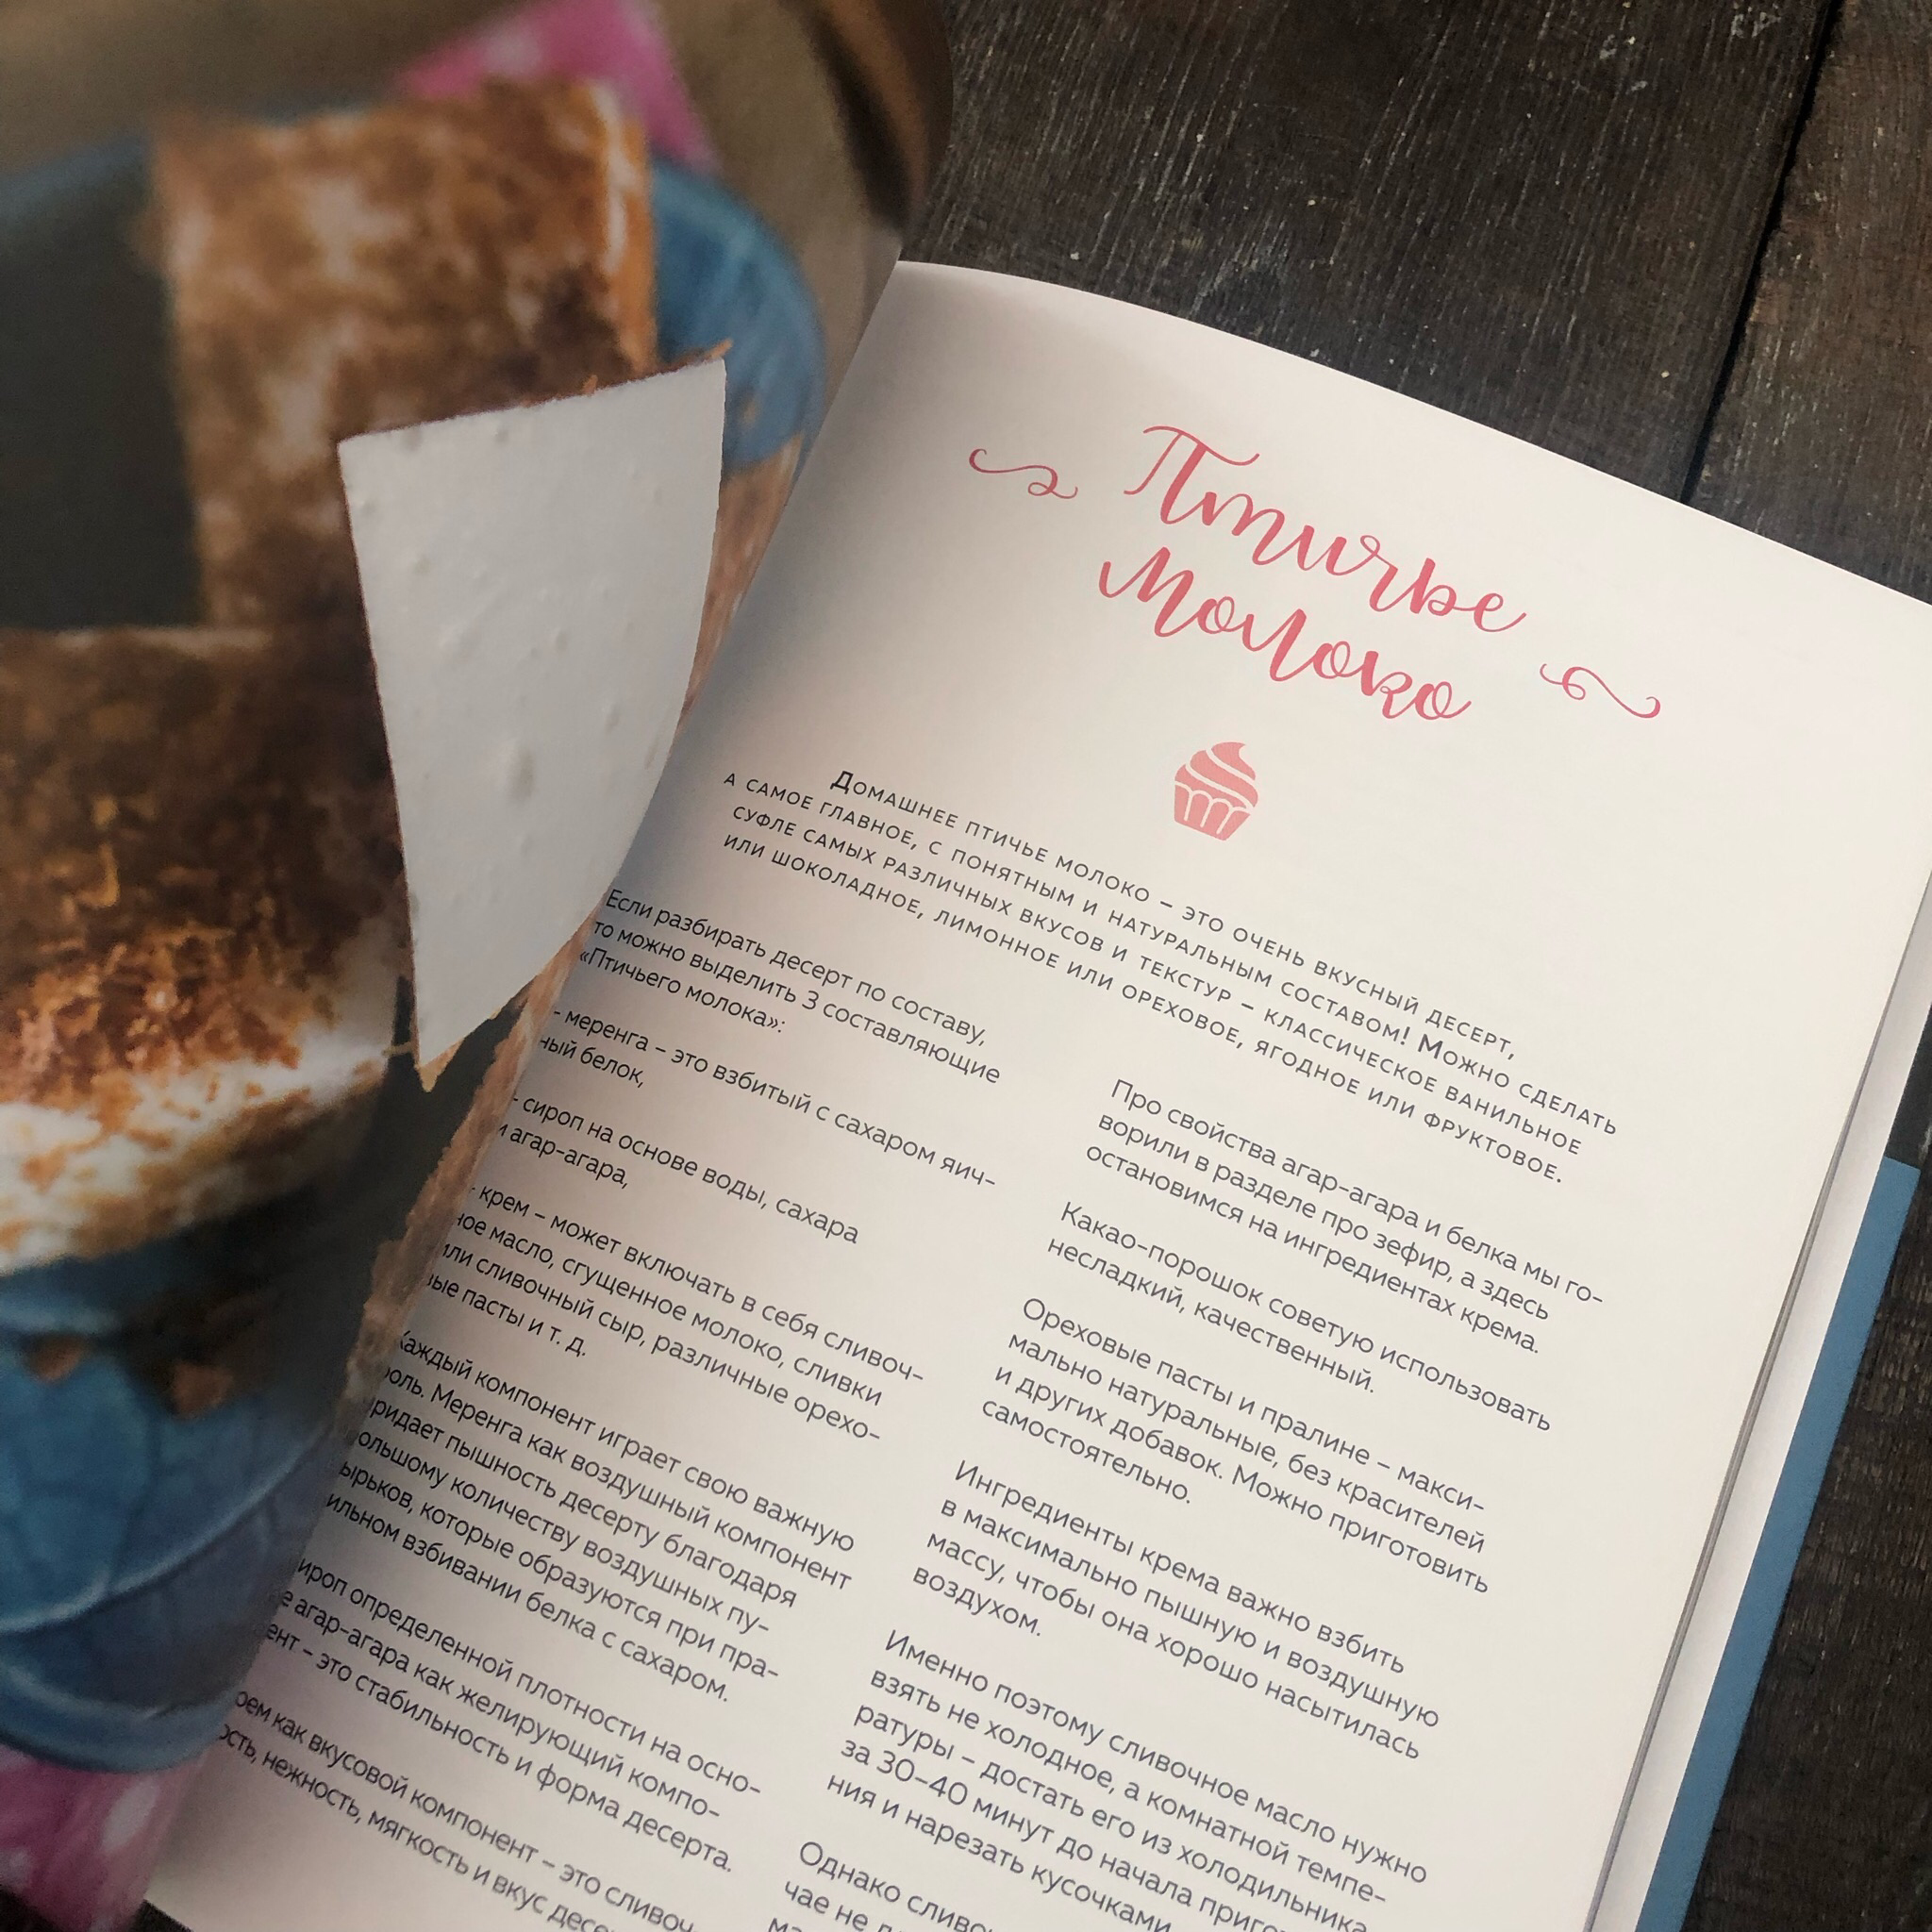 Птичье
молоко
Домашнее птичье молоко – это очень вкусный десерт,
а самое главное, с понятным и натуральным составом! Можно сделать
суфле самых различных вкусов и текстур – классическое ванильное
или шоколадное, лимонное или ореховое, ягодное или фруктовое.
Если разбирать десерт по составу,
то можно выделить 3 составляющие
«Птичьего молока»:
- меренга – это взбитый с сахаром яич-
ный белок,
- сироп на основе воды, сахара
и агар-агара,
- крем – может включать в себя сливоч-
ное масло, сгущенное молоко, сливки
или сливочный сыр, различные орехо-
вые пасты и т. д.
Каждый компонент играет свою важную
роль. Меренга как воздушный компонент
придает пышность десерту благодаря
большому количеству воздушных пу-
зырьков, которые образуются при пра-
вильном взбивании белка с сахаром.
Сироп определенной плотности на осно-
ве агар-агара как желирующий компо-
нент – это стабильность и форма десерта.
Крем как вкусовой компонент – это сливоч-
ность, нежность, мягкость и вкус
Про свойства агар-агара и белка мы го-
ворили в разделе про зефир, а здесь
остановимся на ингредиентах крема.
Какао-порошок советую использовать
несладкий, качественный.
Ореховые пасты и пралине – макси-
мально натуральные, без красителей
и других добавок. Можно приготовить
самостоятельно.
Ингредиенты крема важно взбить
в максимально пышную и воздушную
массу, чтобы она хорошо насытилась
воздухом.
Именно поэтому сливочное масло нужно
взять не холодное, а комнатной темпе-
ратуры – достать его из холодильника
за 30–40 минут до начала
ния и нарезать кусочками
Однако
чае не